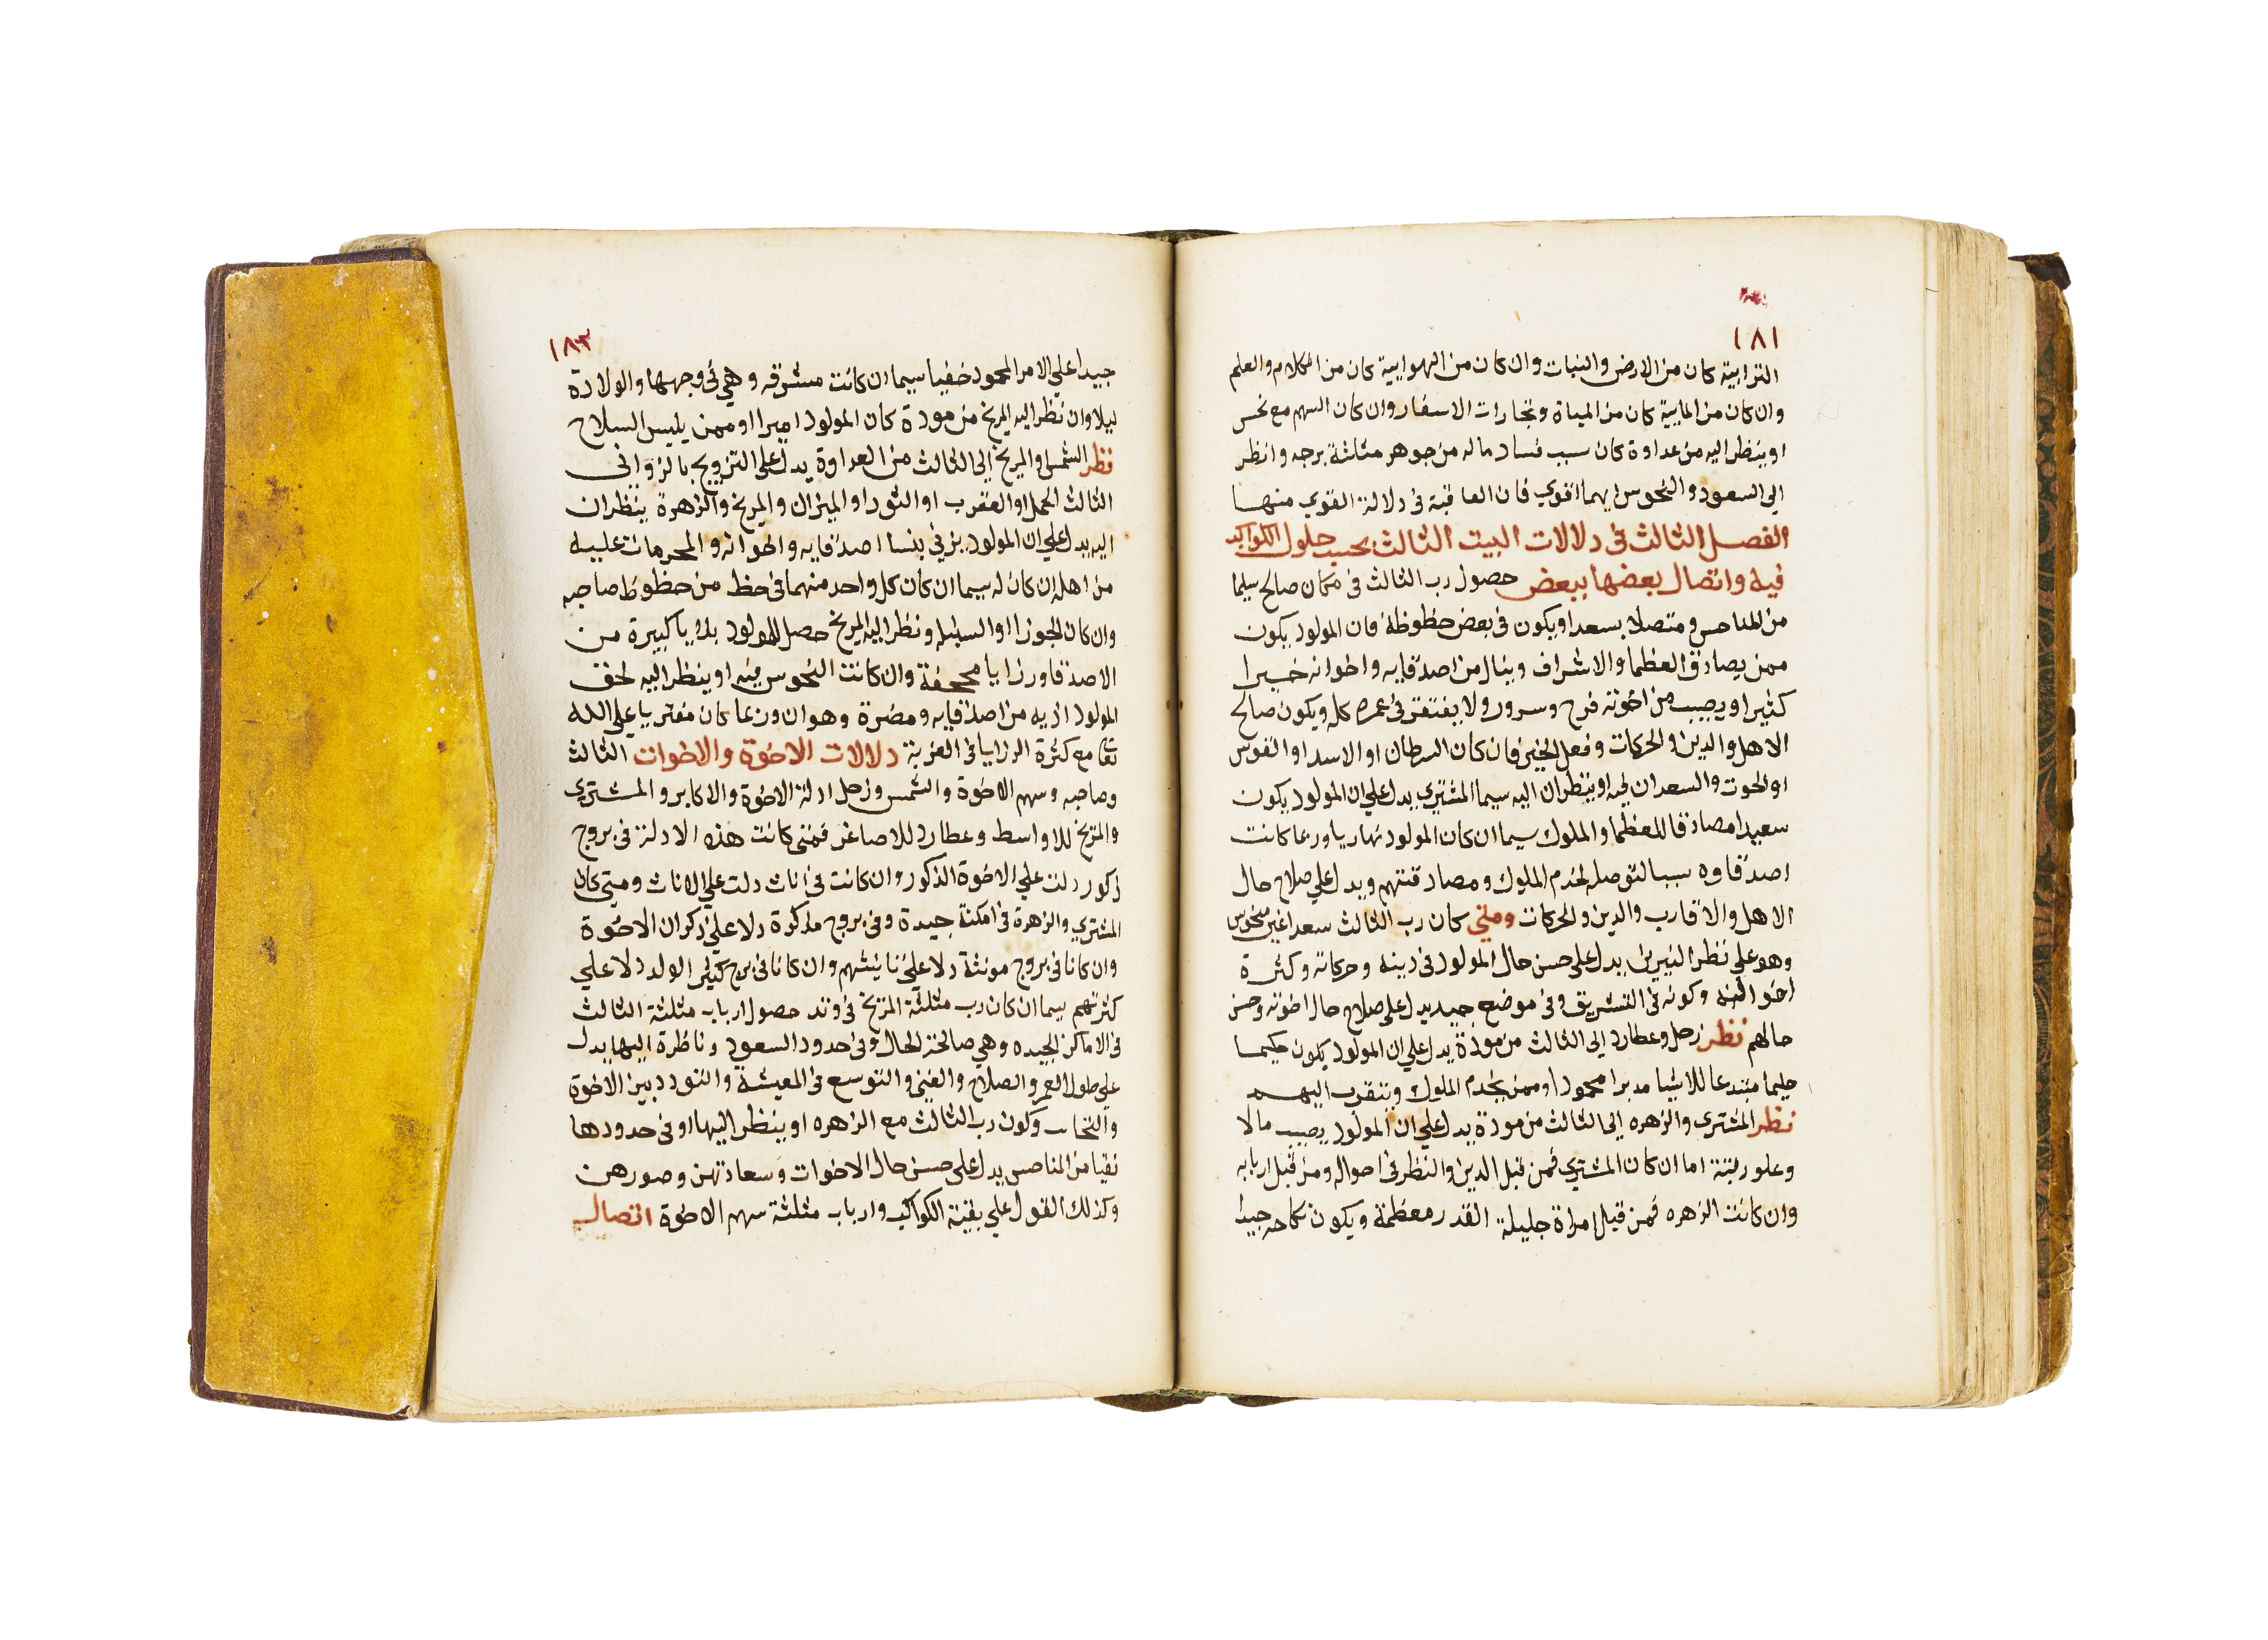 ١٨١
الترابية كان من الارض والنبات وان كان من الهوايية كان من الكلام والعلم
وان كان من المايية كان من المياة وتجارات الاسفار وان كان السهم مع نحس
او ينظر اليه من عداوة كان سبب فساد ماله من جوهر مثلثة برجه وانظر
الي السعود والنحوس ايهما اقوي فان العاقبة في دلالة القوي منها
الفصل الثالث في دلالات البيت الثالث بحسب حلول الكواكب
فيه واتصال بعضها ببعض حصول رب الثالث في مكان صالح سليما
من المناحس ومتصلا بسعد او يكون في بعض حظوظه فان المولود يكون
ممن يصادق العظما والاشراف وينال من اصدقايه واخوانه خيرا
كثيرا ويصيب من اخوته فرح وسرور ولا يفتقر في عمره كله ويكون صالح
الاهل والدين والحركات وفعل الخير فان كان السرطان او الاسد او القوس
او الحوت والسعدان فيه او ينظران اليه سيما المشتري يدل علي ان المولود يكون
سعيدا مصادقا للعظما والملوك سيما ان كان المولود نهاريا وربما كانت
اصدقاوه سببا لتوصله لخدم الملوك ومصادقتهم ويدل علي صلاح حال
الاهل والاقارب والدين والحركات ومتي كان رب الثالث سعدا غير منحوس
وهو علي نظر النيرين يدل علي حسن حال المولود في دينه وحركاته وكثرة
اخواته وكونه في التشريق وفي موضع جيد يدل علي صلاح حال اخوته وحسن
حالهم نظر زحل وعطارد الي الثالث من مودة يدل علي ان المولود يكون حكيما
حليما مبتدعا للاشيا مدبرا محمودا وممن يخدم الملوك ويتقرب اليهم
نظر المشتري والزهره الي الثالث من مودة يدل علي ان المولود يصيب مالا
وعلو رتبة اما ان كان المشتري فمن قبل الدين والنظر في احواله ومن قبل اربابه
وان كانت الزهره فمن قبل امراة جليلة القدر معظمة ويكون نكاحه جيدا
١٨٣
جيدا علي الامر المحمود خفيا سيما ان كانت مشرقه وهي في وجهها والولادة
ليلا وان نظر اليه المريخ من مودة كان المولود اميرا او ممن يلبس السلاح
نظر الشمس والمريخ الي الثالث من العداوة يدل علي التزويج بالزواني
الثالث الحمل او العقرب او الثور او الميزان والمريخ والزهرة ينظران
اليه يدل علي ان المولود يزني بنسا اصدقايه واخوانه والمحرمات عليه
من اهله ان كان له سيما ان كان كل واحد منهما في حظ من حظوظ صاحبه
وان كان الجوزا او السنبله ونظر اليه المريخ حصل للمولود بلايا كبيرة من
الاصدقا ورزايا مجحفة وان كانت النحوس فيه او ينظر اليه لحق
المولود اذيه من اصدقايه ومضرة وهوان وربما كان مفتريا علي الله
تعا مع كثرة الرزايا في الغربة دلالات الاخوة والاخوات الثالث
وصاحبه وسهم الاخوة والشمس وزحل ادلة الاخوة والاكابر والمشتري
والمريخ للاواسط وعطارد للاصاغر فمتي كانت هذه الادلة في بروج
ذكور دلت علي الاخوة الذكور وان كانت في اناث دلت علي الاناث ومتي كان
المشتري والزهرة في امكنة جيدة وفي بروج مذكرة دلا علي ذكران الاخوة
وان كانا في بروج مونثة دلا علي تانيثهم وان كانا في برج كثير الولد دلا علي
كثرتهم سيما ان كان رب مثلثة المريخ في وتد حصول ارباب مثلثة الثالث
في الاماكن الجيده وهي صالحة الحال وفي حدود السعود وناظرة اليها يدل
علي طول العمر والصلاح والغني والتوسع في المعيشة والتودد بين الاخوة
والتحاب وكون رب الثالث مع الزهره او ينظر اليها او في حدودها
نقيا من المناحس يدل علي حسن حال الاخوات وسعادتهن وصورهن
وكذلك القول علي بقية الكواكب وارباب مثلثة سهم الاخوة اتصال